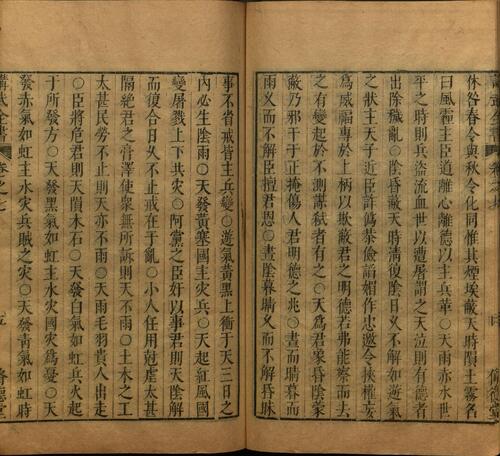 休咎春令與秋令化同惟其煙埃蔽天時隕土霧名
曰風霾主臣道離心離德以主兵革○天雨赤水世
平之時則兵盗流血世以遭屠謂之天泣則有德者
出除穢亂○陰昏蔽天時清復陰日又不解如遊氣
之狀王天子近臣許偽荼儉諂媚作忠邀令挾權妄
為威福專於上柄以欺蔽君之明德若弗能察而去
之有變起於不測謀弑者有之○天爲君象昏陰蒙
蔽乃邪干于正掩傷人君明德之兆○晝而晴暮而
雨又而不解臣擅君恩○晝陰暮晴又而不解昏昧
事不省戒皆主兵變○遊氣青黑上衝于天三日之
內必生陰雨○天發黄葉國主灾兵○天起紅風國
變屠戮上下共灾○阿黨之臣奸以事君則天陰解
而復合日久不止戒在于亂○小人任用尅虐太甚
隔絶君之膏澤使衆無所訴則天不雨○土木之工
太甚民勞不止則天亦不雨○天雨毛羽貴人出走
○臣將危君則天隕木石○天發白氣如虹兵火起
于所發方○天發黑氣如虹主水灾國灾爲憂○天
發赤氣如虹主水灾兵賊之灾○天發青氣如虹時
講武全書
卷之七
五